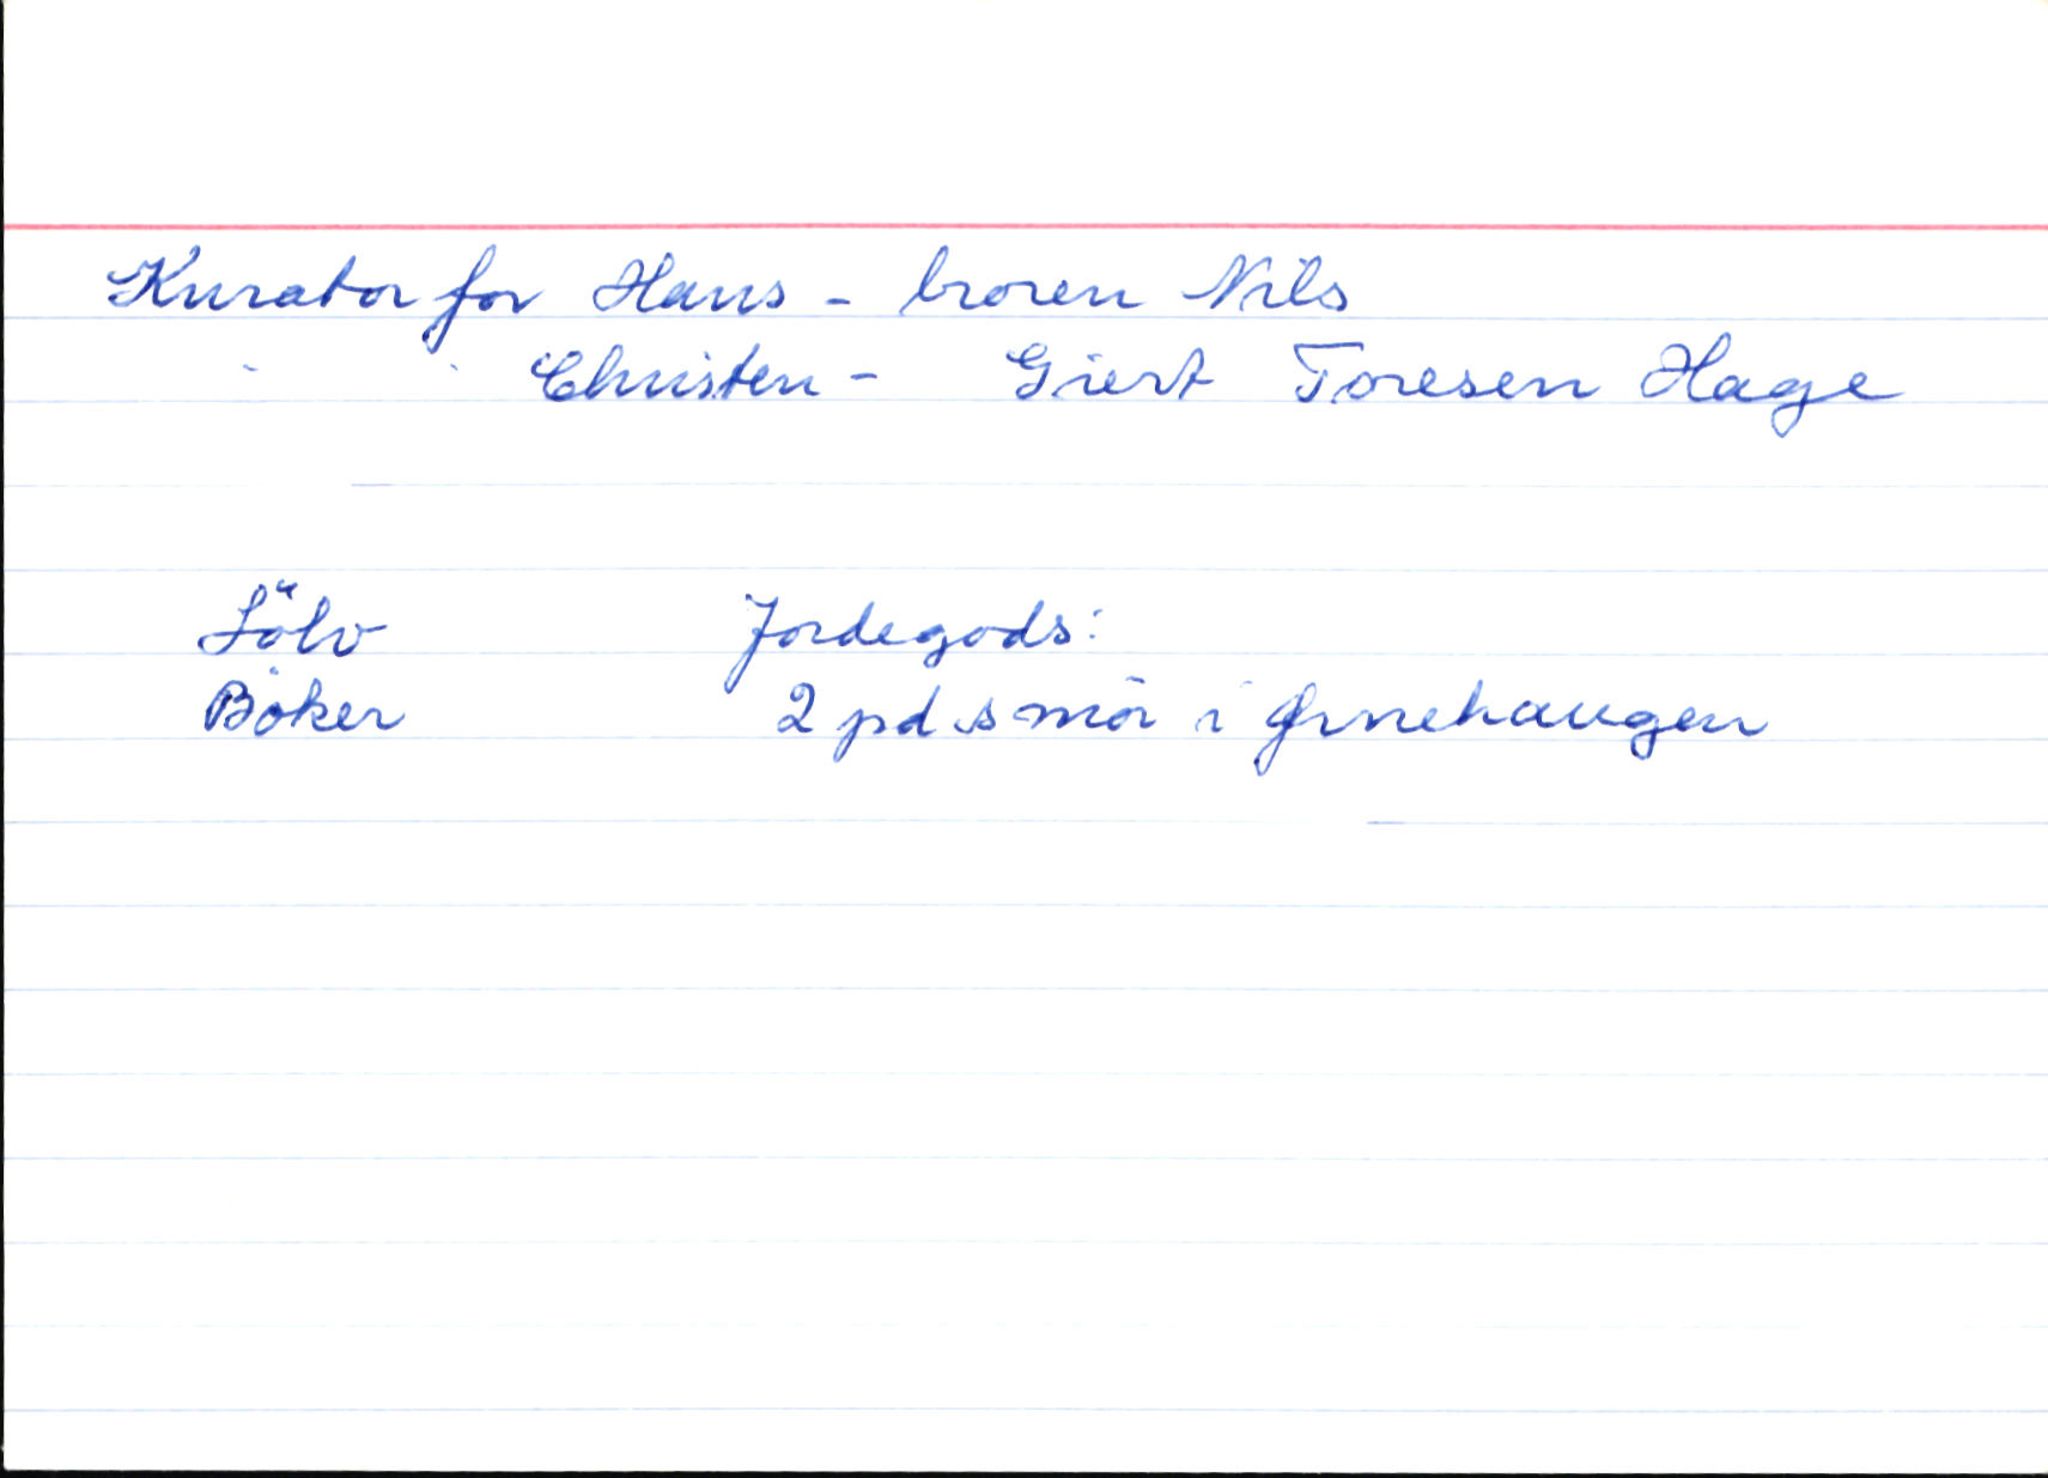 Kurator for Hans - broren Nils
" " Christen - Giert Toresen Hage
Sölv Jordegods:
Böker 2 pd smör i Ørnehaugen